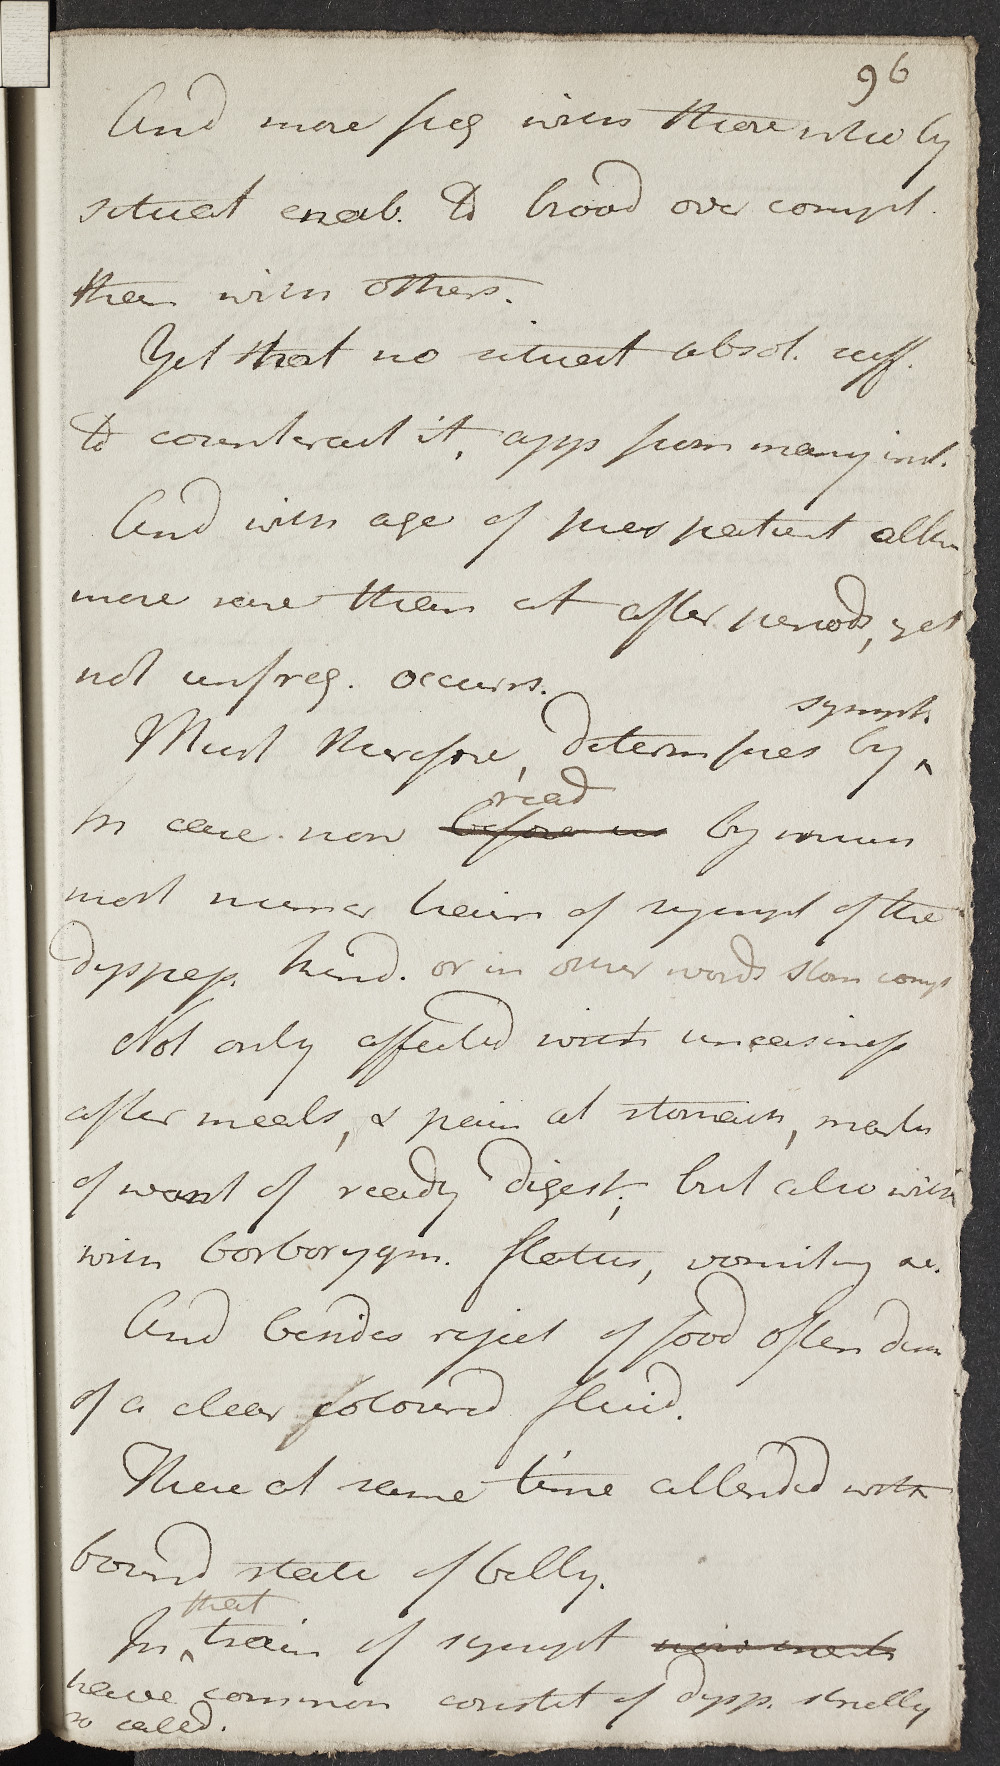 96
And more freq with those who by
situat enab. to brood over compl.
than with others.
Yet that no situat absol. suff.
to counteract it, app from many inst.
And with age of pres patient altho
more rare than at after periods, yet
not unfreq. occurs.
sympt.
Must therefore, determ pres by ^
read
In case now before us by much
most numer train of sympt of the
dyspeps. kind. or in other words stom comp
Not only affected with uneasiness
after meals, & pain at stomach, marks
of want of ready digest; but also with
with borborygm. flatus, vomiting &c.
And besides reject of food often
of a clear coloured fluid.
These at same time attended with
bound state of belly.
that
In ^ train of sympt
have common constit of dysp. strictly
so called.